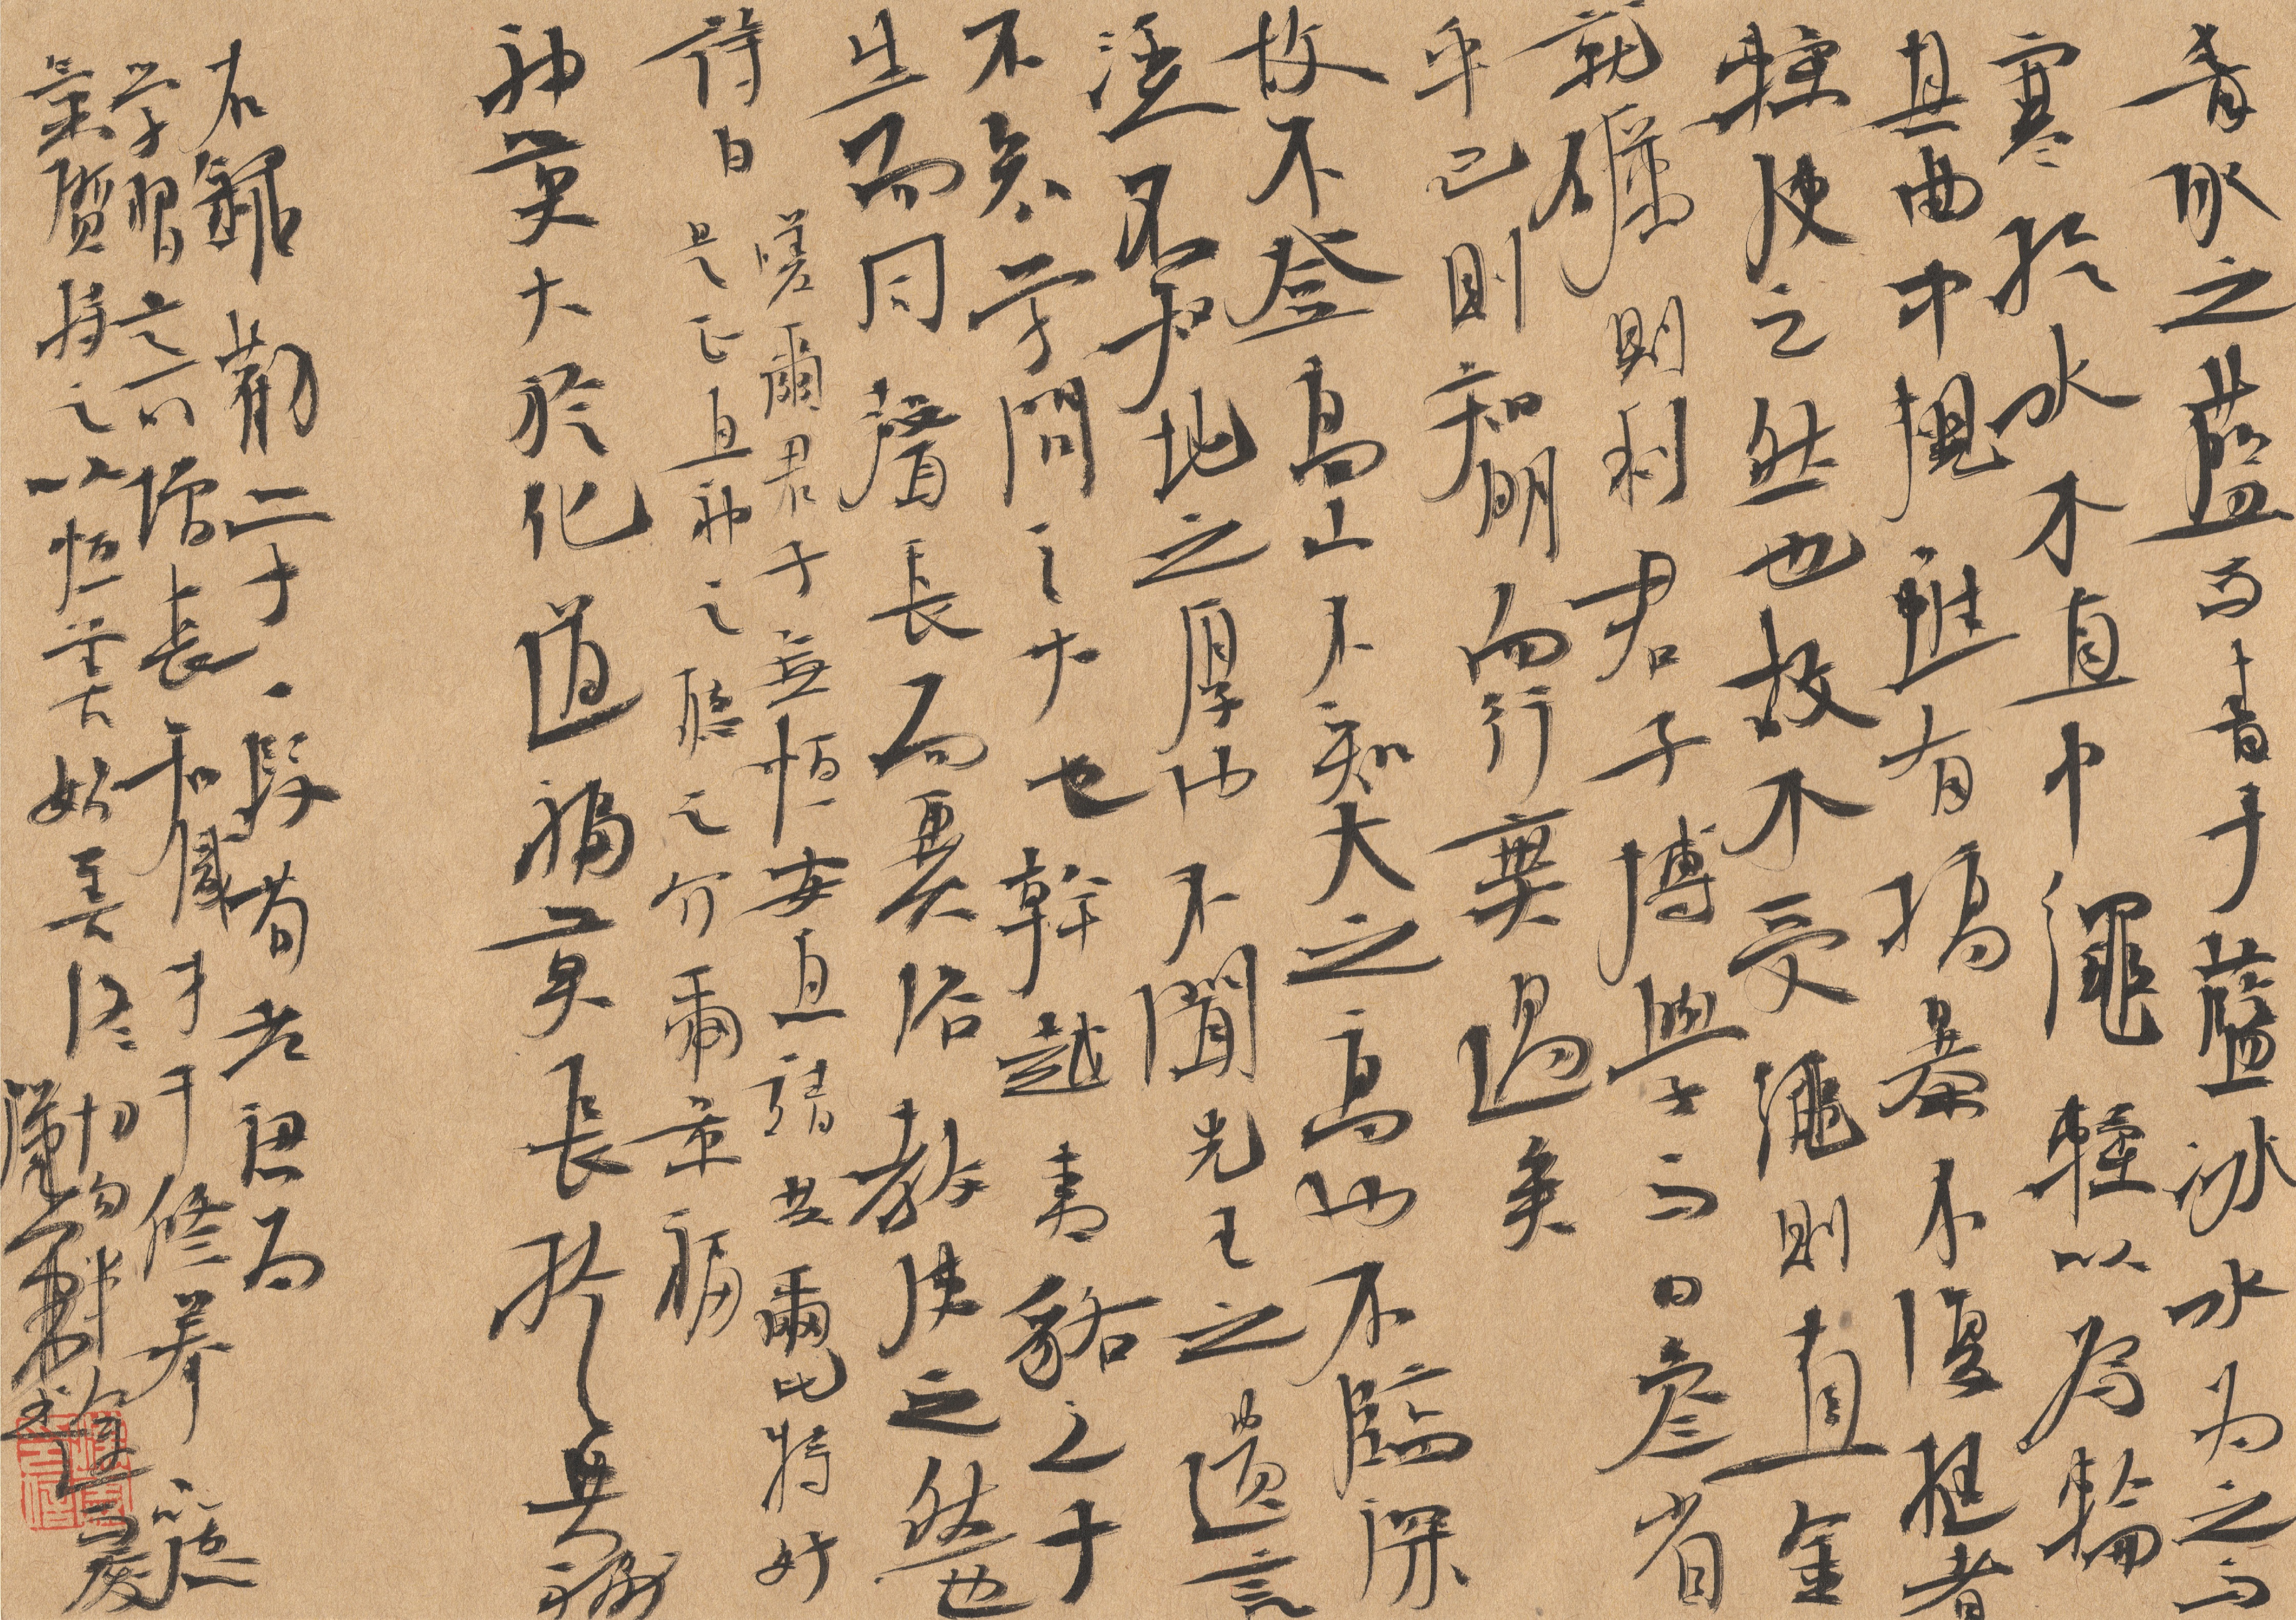 青取之藍而青于藍冰水为之而
寒於水木直中繩輮以為輪
其曲中規雖有槁暴不復挺者
輮使之然也故木受繩則直金
就礪則利君子博學而日參省
乎己則知明而行無過矣
故不登高山不知天之高也不臨深
溪不知地之厚也不聞先王之遺言
不知学問之大也幹越夷貉之子
生而同聲長而異俗教使之然也
詩曰
嗟爾君子無恒安靖共爾好
是正直神之聽之介爾景福
神莫大於化道福莫長於無禍
右錄勸一段荀老認为
学習可以增長知識才干修养
氣质持之以恒善始善终切勿